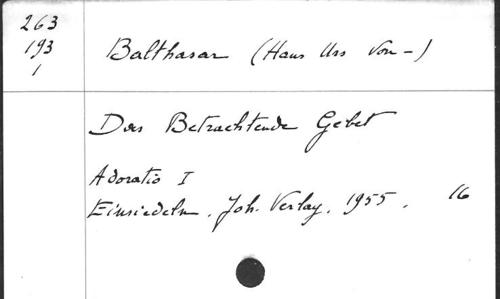 263
193
1
Balthasar (Hans Urs von -)
Das Betrachtende Gebet
Adoratio I
Einsiedeln, Joh. Verlag, 1955. 16